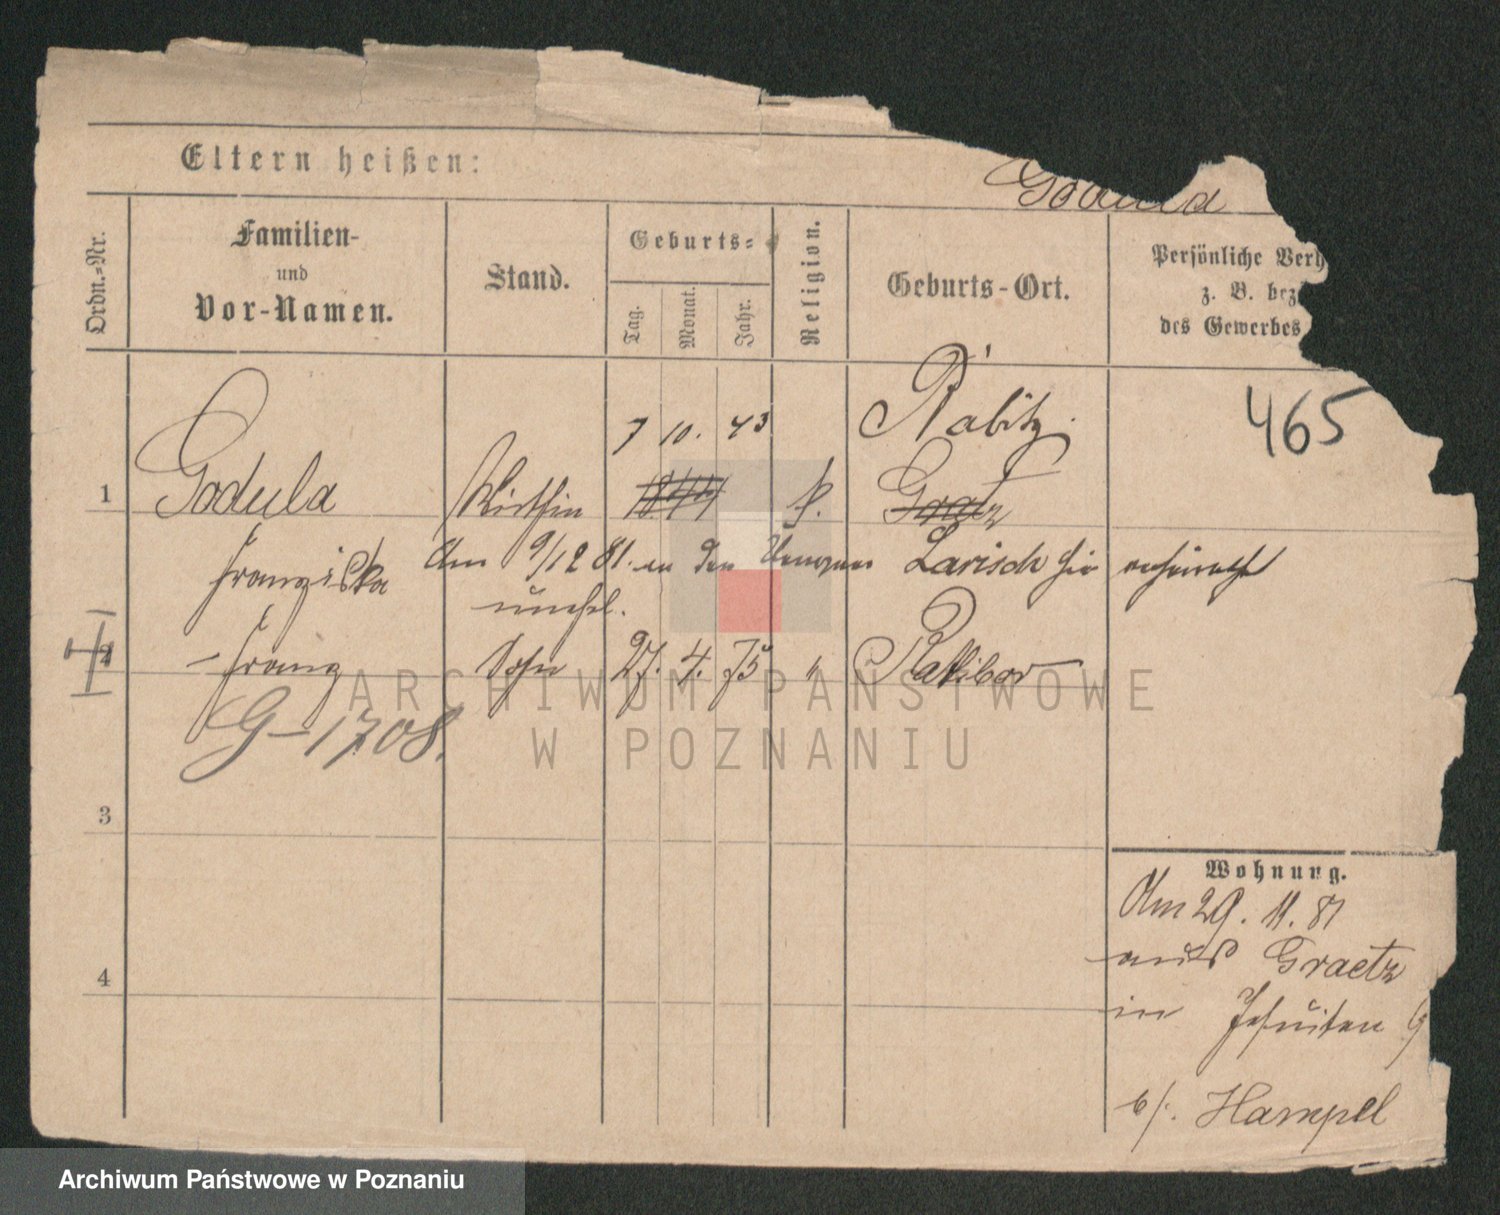 Eltern heißen:
Godula
Ordn.-Nr.
Familien-
und
Vor-Namen.
Stand.
Geburts-
Tag.
Monat.
Jahr.
Religion.
Geburts-Ort.
Persönliche Verh
z. B. bez
des Gewerbes
465
7 10. 43 Rabitz
1 Godula Wirthin 1844 k. Graetz
Franziska Am 9/12 81. an den Larisch hier verheirathet
unehl.
2 Franz Sohn 27. 4. 75 " Ratibor
G-1708.
3
4
Wohnung.
Am 29. 11. 81
aus Graetz
in Jesuiten G
b/. Hampel
ARCHIWUM PAŃSTWOWE
W POZNANIU
Archiwum Państwowe w Poznaniu